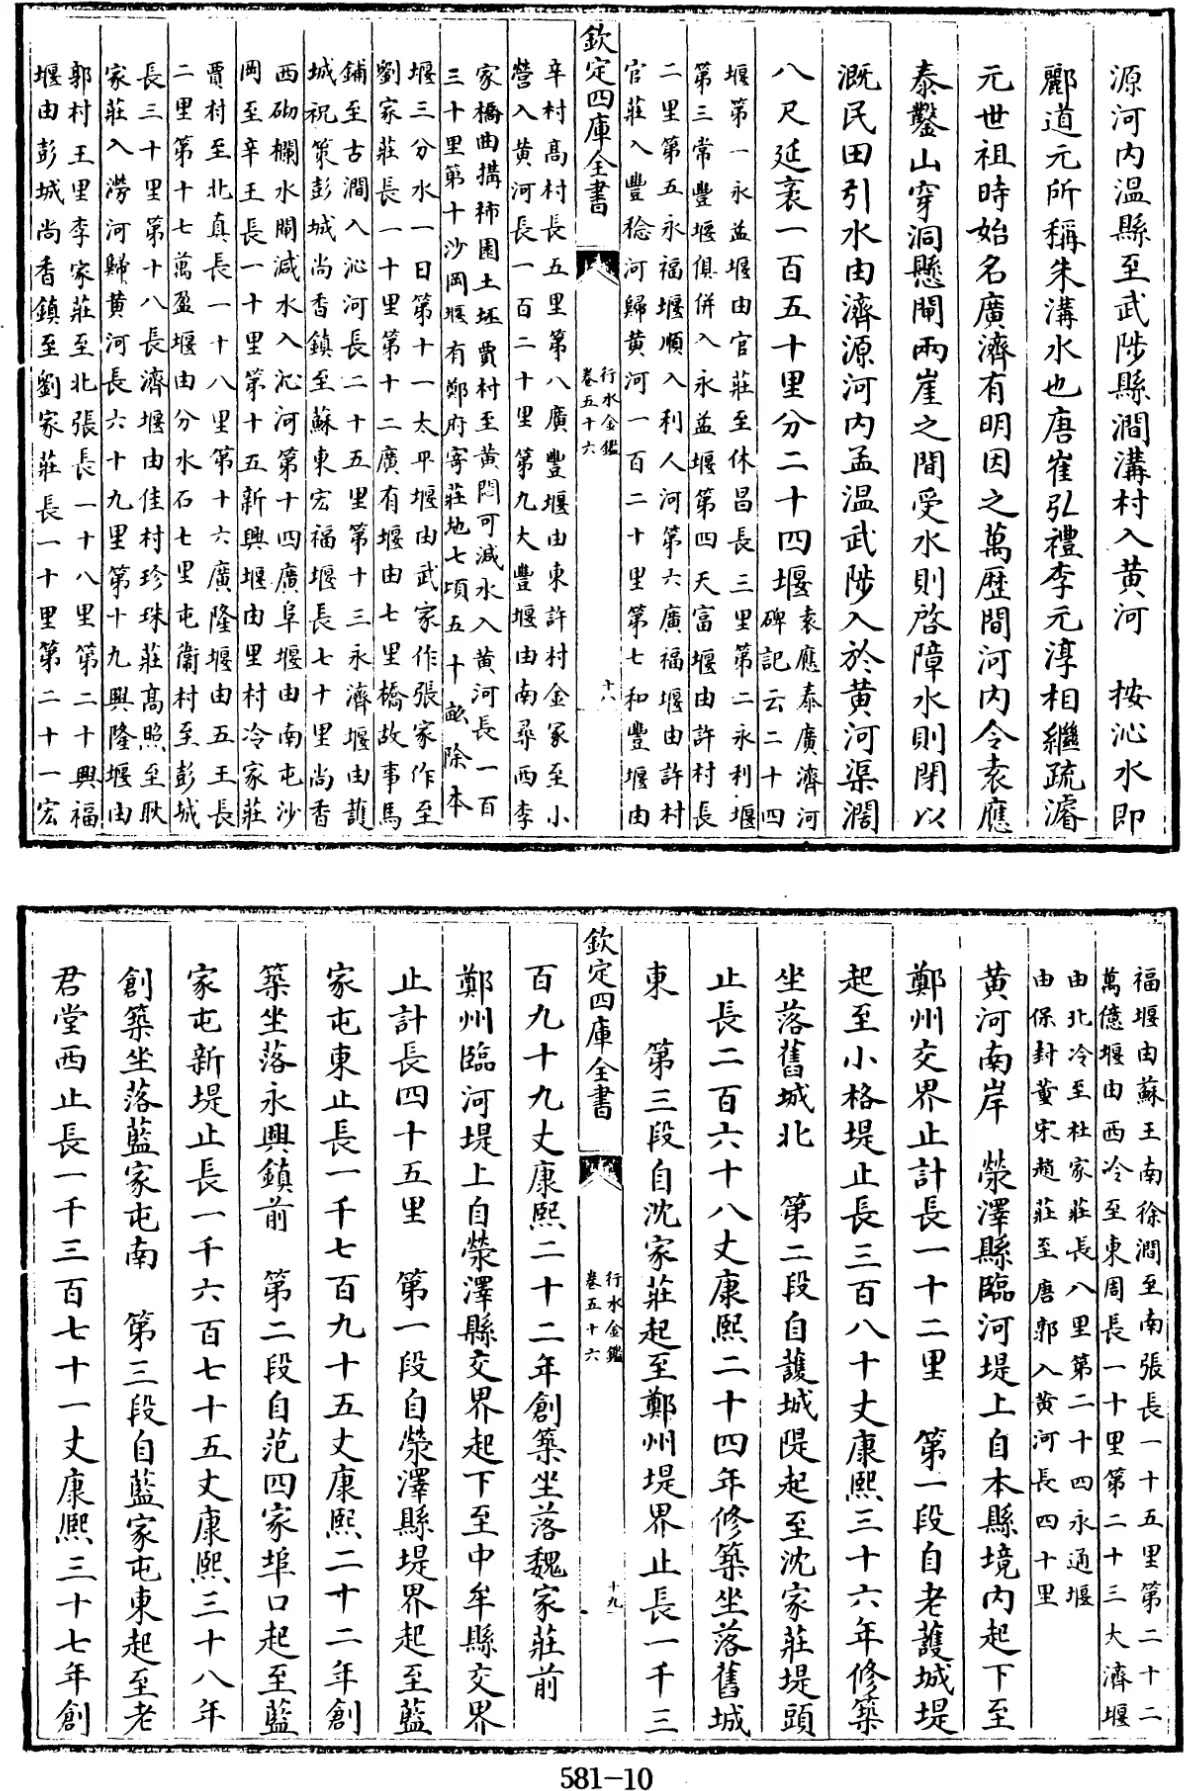 源河内温縣至武陟縣澗溝村入黄河　按沁水即
酈道元所稱朱溝水也唐崔弘禮李元淳相繼疏濬
元世祖時始名廣濟有明因之萬歴間河内令袁應
泰鑿山穿洞懸閘兩崖之間受水則啓障水則閉以
溉民田引水由濟源河内孟温武陟入於黄河渠濶
八尺延袤一百五十里分二十四堰
袁應泰廣濟河
碑記云二十四
堰第一永益堰由官莊至休昌長三里第二永利堰
第三常豐堰俱併入永益堰第四天富堰由許村長
二里第五永福堰順入利人河第六廣福堰由許村
官莊入豐稔河歸黄河一百二十里第七和豐堰由
欽定四庫全書
行水金鑑
卷五十六
十八
辛村髙村長五里第八廣豐堰由東許村金冢至小
營入黄河長一百二十里第九大豐堰由南尋西李
家橋曲搆柿園土坯賈村至黄閻可減水入黄河長一百
三十里第十沙岡堰有鄭府寄莊地七頃五十畝除本
堰三分水一日第十一太平堰由武家作張家作至
劉家莊長一十里第十二廣有堰由七里橋故事馬
鋪至古澗入沁河長二十五里第十三永濟堰由䕶
城祝策彭城尚香鎮至蘇東宏福堰長七十里尚香
西砌欄水閘減水入沁河第十四廣阜堰由南屯沙
岡至辛王長一十里第十五新興堰由里村冷家莊
賈村至北真長一十八里第十六廣隆堰由五王長
二里第十七萬盈堰由分水石七里屯衞村至彭城
長三十里第十八長濟堰由佳村珍珠莊髙照至耿
家莊入澇河歸黄河長六十九里第十九興隆堰由
郭村王里李家莊至北張長一十八里第二十興福
堰由彭城尚香鎮至劉家莊長一十里第二十一宏
福堰由蘇王南徐澗至南張長一十五里第二十二
萬億堰由西冷至東周長一十里第二十三大濟堰
由北冷至杜家莊長八里第二十四永通堰
由保封董宋趙莊至唐郭入黄河長四十里
黄河南岸　滎澤縣臨河堤上自本縣境内起下至
鄭州交界止計長一十二里　第一段自老䕶城堤
起至小格堤止長三百八十丈康熙三十六年修築
坐落舊城北　第二段自䕶城隄起至沈家莊堤頭
止長二百六十八丈康熙二十四年修築坐落舊城
東　第三段自沈家莊起至鄭州堤界止長一千三
欽定四庫全書
行水金鑑
卷五十六
十九
百九十九丈康熙二十二年創築坐落魏家莊前
鄭州臨河堤上自滎澤縣交界起下至中牟縣交界
止計長四十五里　第一段自滎澤縣堤界起至藍
家屯東止長一千七百九十五丈康熙二十二年創
築坐落永興鎮前　第二段自范四家埠口起至藍
家屯新堤止長一千六百七十五丈康熙三十八年
創築坐落藍家屯南　第三段自藍家屯東起至老
君堂西止長一千三百七十一丈康熙三十七年創
581-10